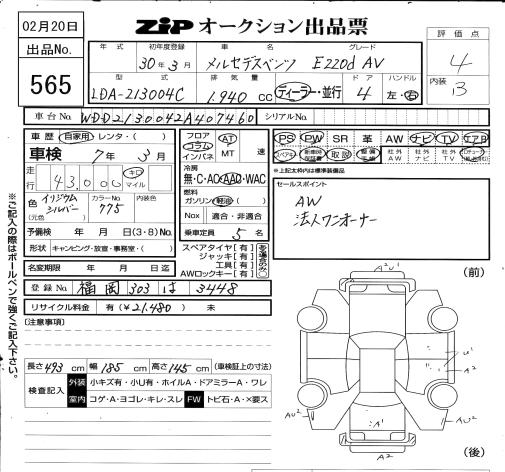 02月20日
出品No.
565
ZiP オークション出品票
評価点
4
内装
B
年式 初年度登録 車名 グレード
30年3月 メルセデスベンツ E220d AV
型式 排気量 ドア ハンドル
LDA-213004C 1.940 cc ディーラー・並行 4 左・右
車台No. WDD2130042A407460 シリアルNo.
車歴 自家用・レンタ・( )
車検 7年3月
走行 43,000 キロ マイル
色 イリジウムシルバー カラーNo. 775 内装色
(元色)
予備検 年 月 日(3・8)No.
形状 キャンピング・放室・事務室・( )
名変期限 年 月 日迄
フロア コラム インパネ AT MT 速
冷房
無・C・AC・AAC・WAC
燃料
ガソリン・軽油・( )
Nox 適合・非適合
乗車定員 5 名
スペアタイヤ【有】
ジャッキ【有】
工具【有】
AWロックキー【有】
PS PW SR 革 AW ナビ TV エアB
スペアキー 取説 社外AW 社外ナビ 社外TV
※上記太枠内は標準装備品
セールスポイント
AW
法人ワンオーナー
登録No. 福岡 303 は 3448
リサイクル料金 有(¥21.480) 未
[注意事項]
長さ 493 cm 幅 185 cm 高さ 145 cm (車検証上の寸法)
検査記入 外装 小キズ有・小U有・ホイルA・ドアミラーA・ワレ
室内 コゲ・A・ヨゴレ・キレ・スレ FW トビ石・A・×要ス
※ご記入の際はボールペンで強くご記入下さい。
(前)
A2U1
U1
A2
AU2
AU2
A1
A2
(後)